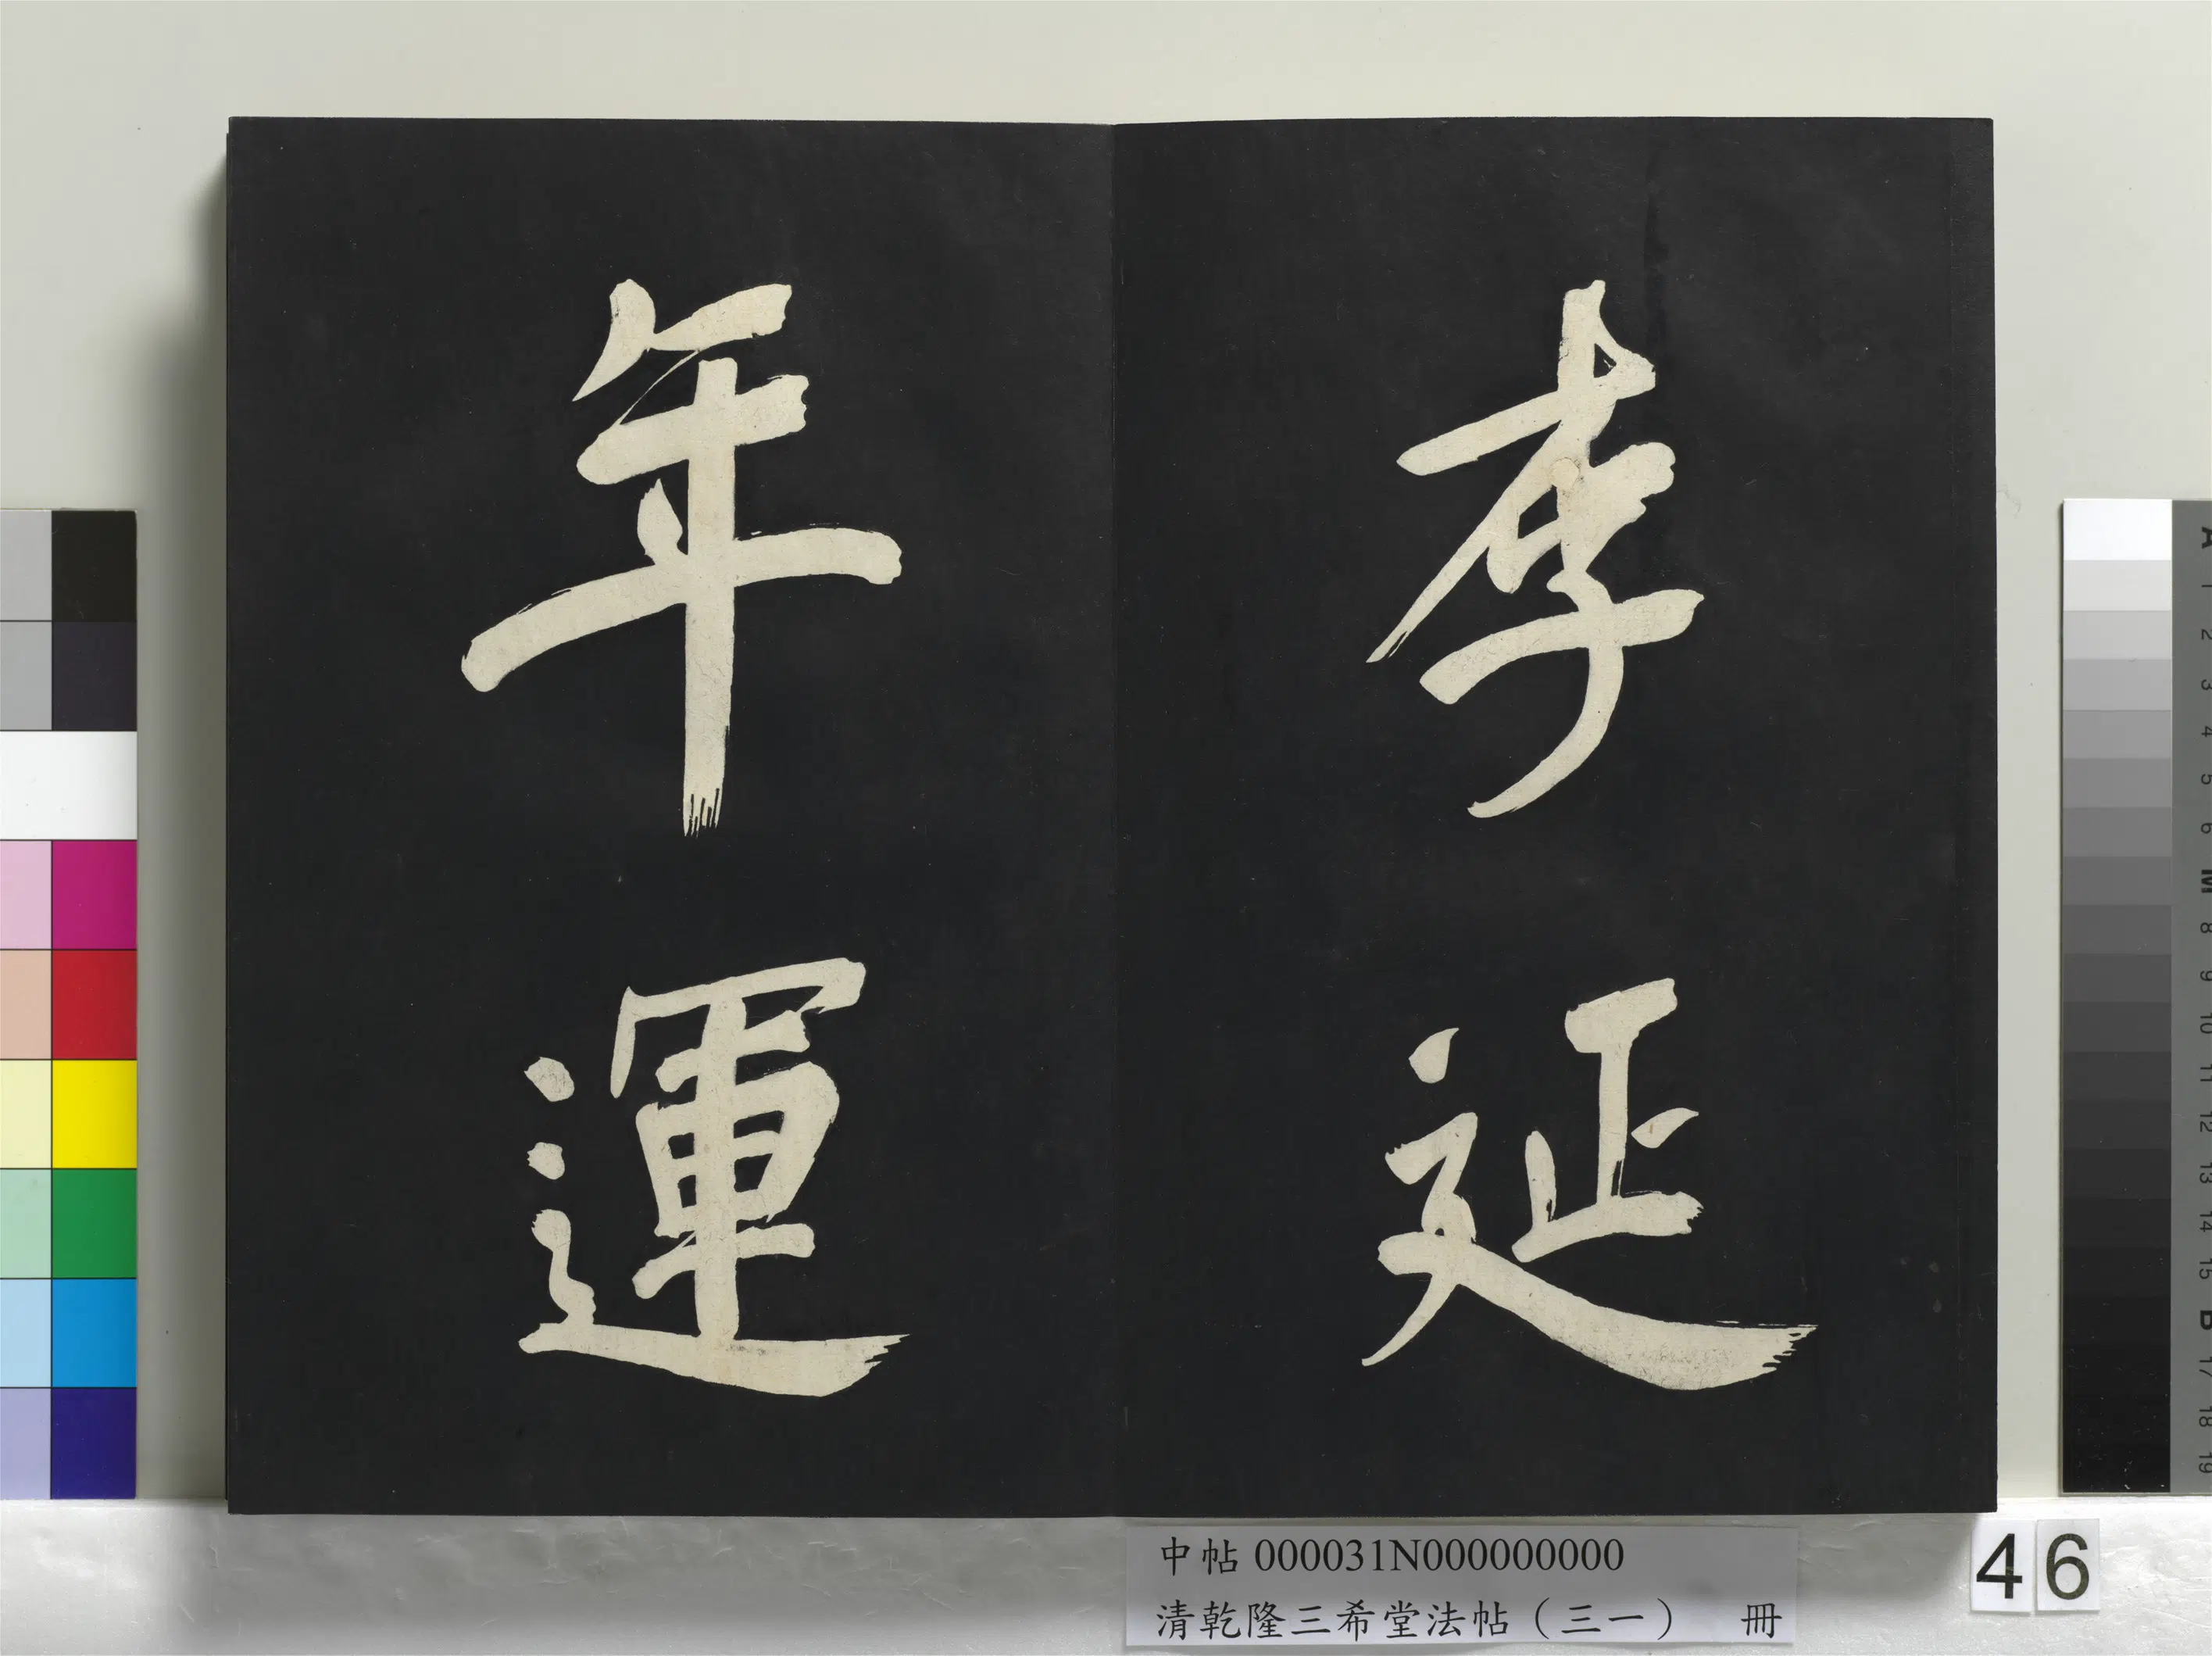 李延
年運
中帖 000031N000000000
清乾隆三希堂法帖（三一） 冊
46
A
1
2
3
4
5
6
M
8
9
10
11
12
13
14
15
B
17
18
19